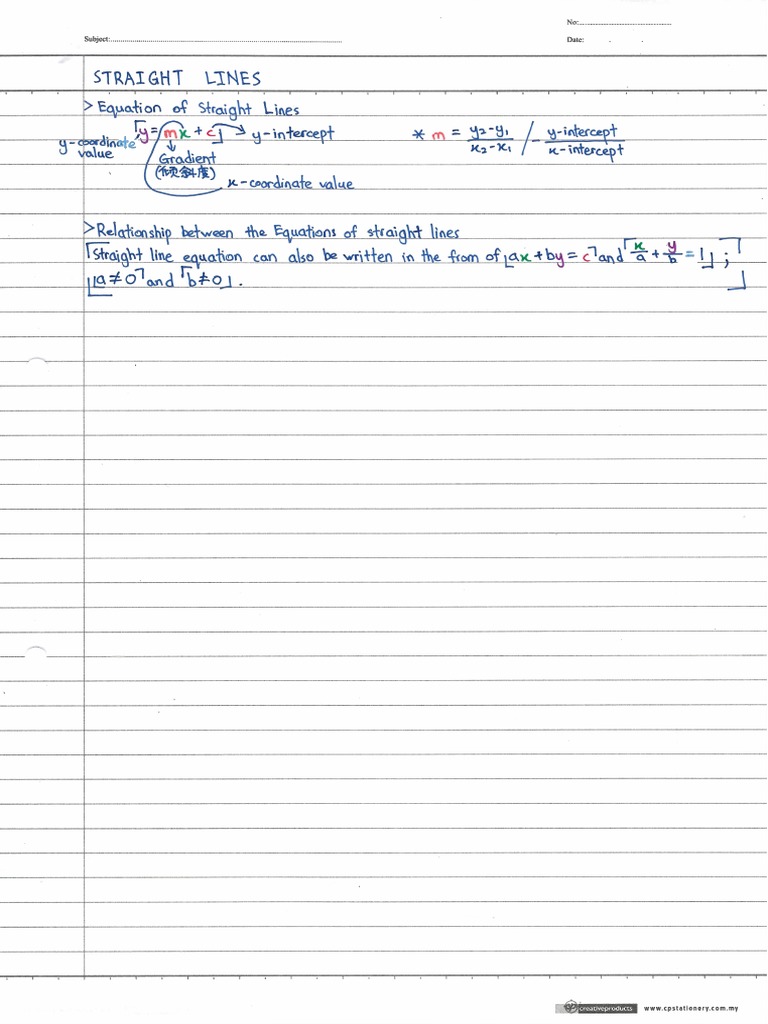 No:
Subject: Date:
STRAIGHT LINES
> Equation of Straight Lines
「y = mx + c」 → y-intercept
y-coordinate value
Gradient
(倾斜度)
x-coordinate value
* m = y₂-y₁ / x₂-x₁ / - y-intercept / x-intercept
> Relationship between the Equations of straight lines
「Straight line equation can also be written in the from of 「ax + by = c」 and 「x/a + y/b = 1」 ;
「a ≠ 0」 and 「b ≠ 0」.」
cp creativeproducts www.cpstationery.com.my